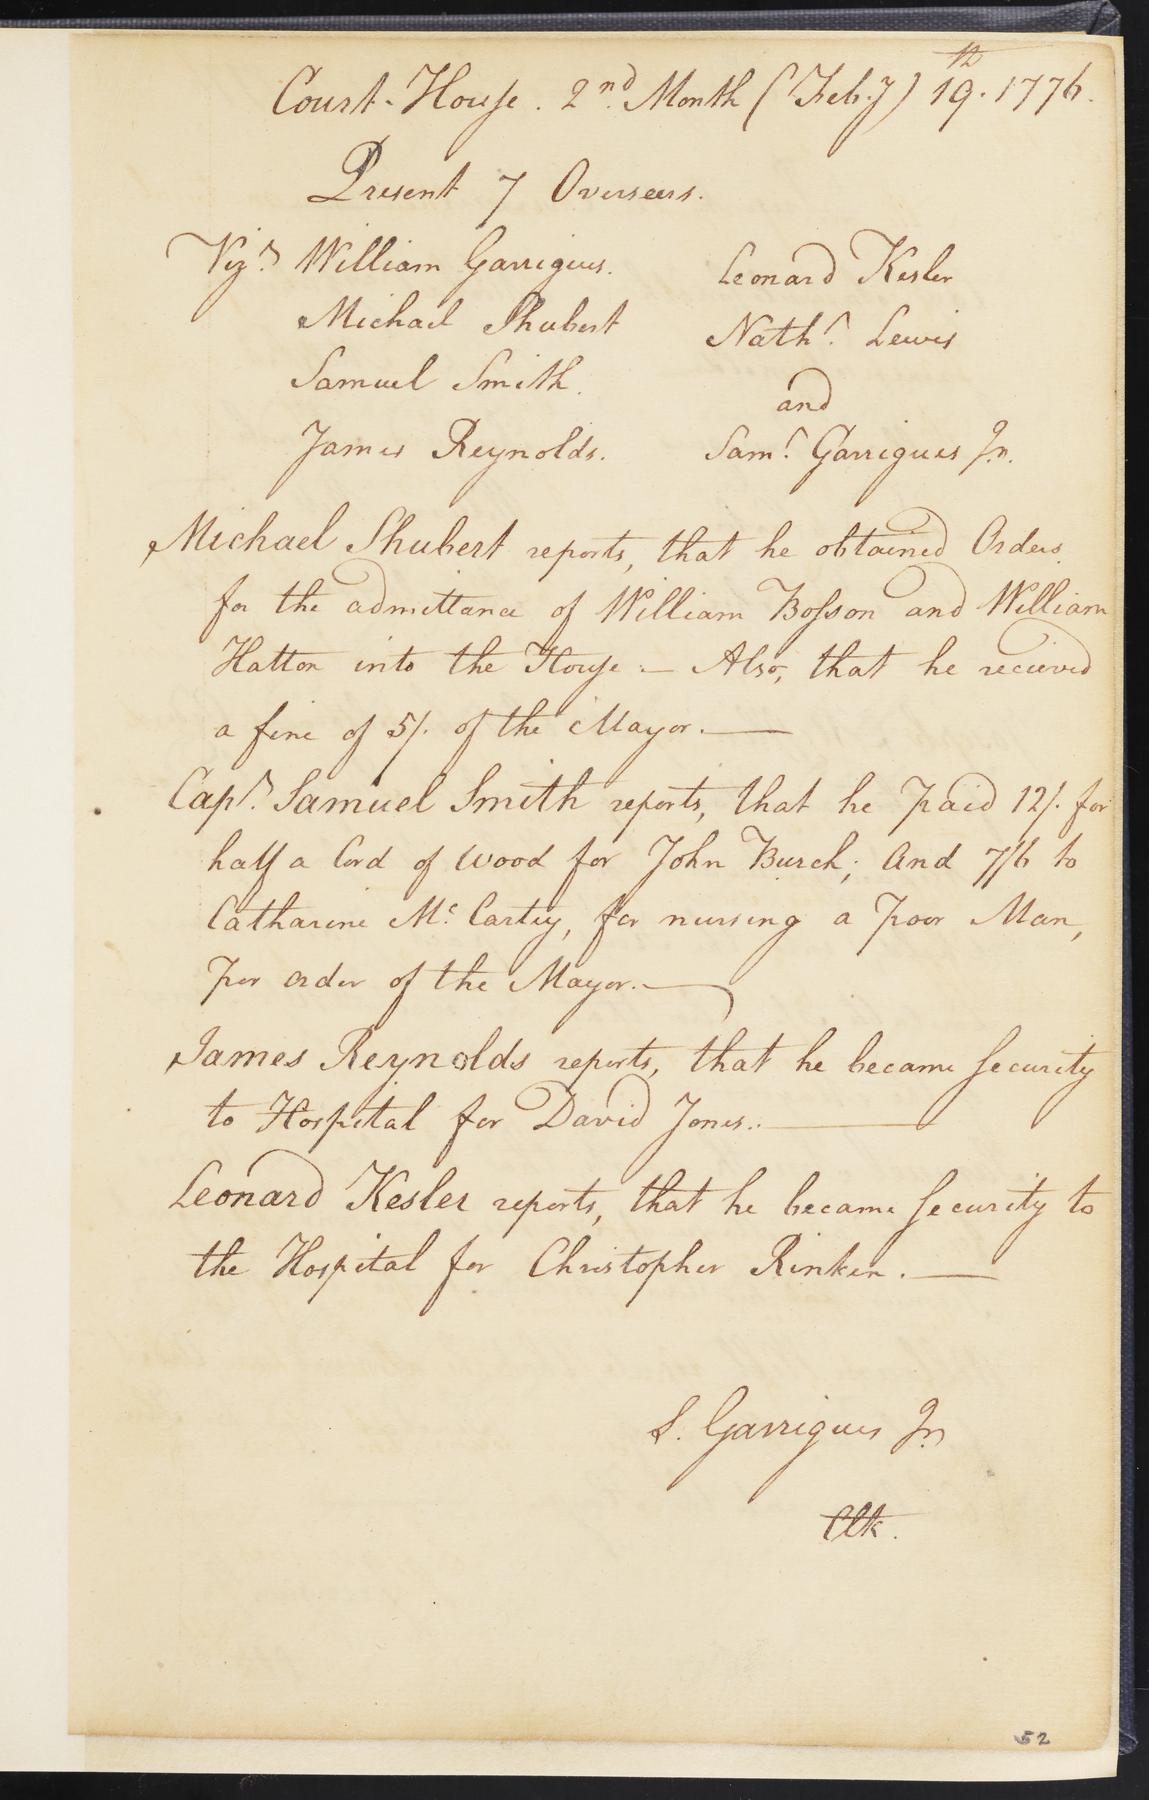 Court-House. 2nd Month (Feb.y) 19th. 1776.
Present 7 Overseers.
Vizt. William Garrigues.
Michael Shubert
Samuel Smith.
James Reynolds.
Leonard Kesler
Nathl. Lewis
and
Saml. Garrigues Jn.
Michael Shubert reports, that he obtained Orders
for the admittance of William Bosson and William
Hatton into the House:— Also, that he recieved
a fine of 5/. of the Mayor.—
Capt. Samuel Smith reports, that he paid 12/. for
half a Cord of wood for John Burch; And 7/6 to
Catharine Mc. Cartey, for nursing a poor Man,
per order of the Mayor.—
James Reynolds reports, that he became Security
to Hospital for David Jones..—
Leonard Kesler reports, that he became Security to
the Hospital for Christopher Rinker.—
S. Garrigues Jn
Clk.
52